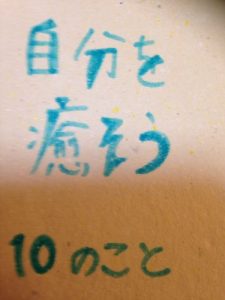 自分を
癒そう
10のこと